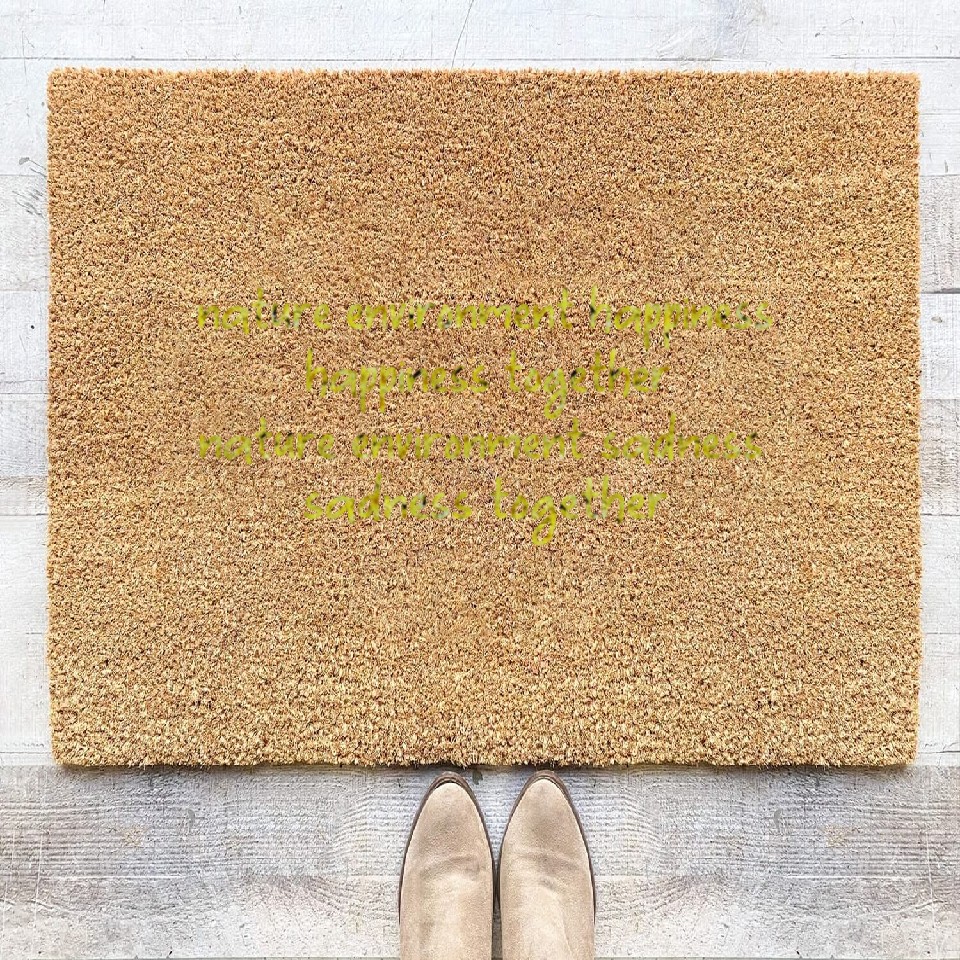 nature environment happiness
happiness together
nature environment sadness
sadness together